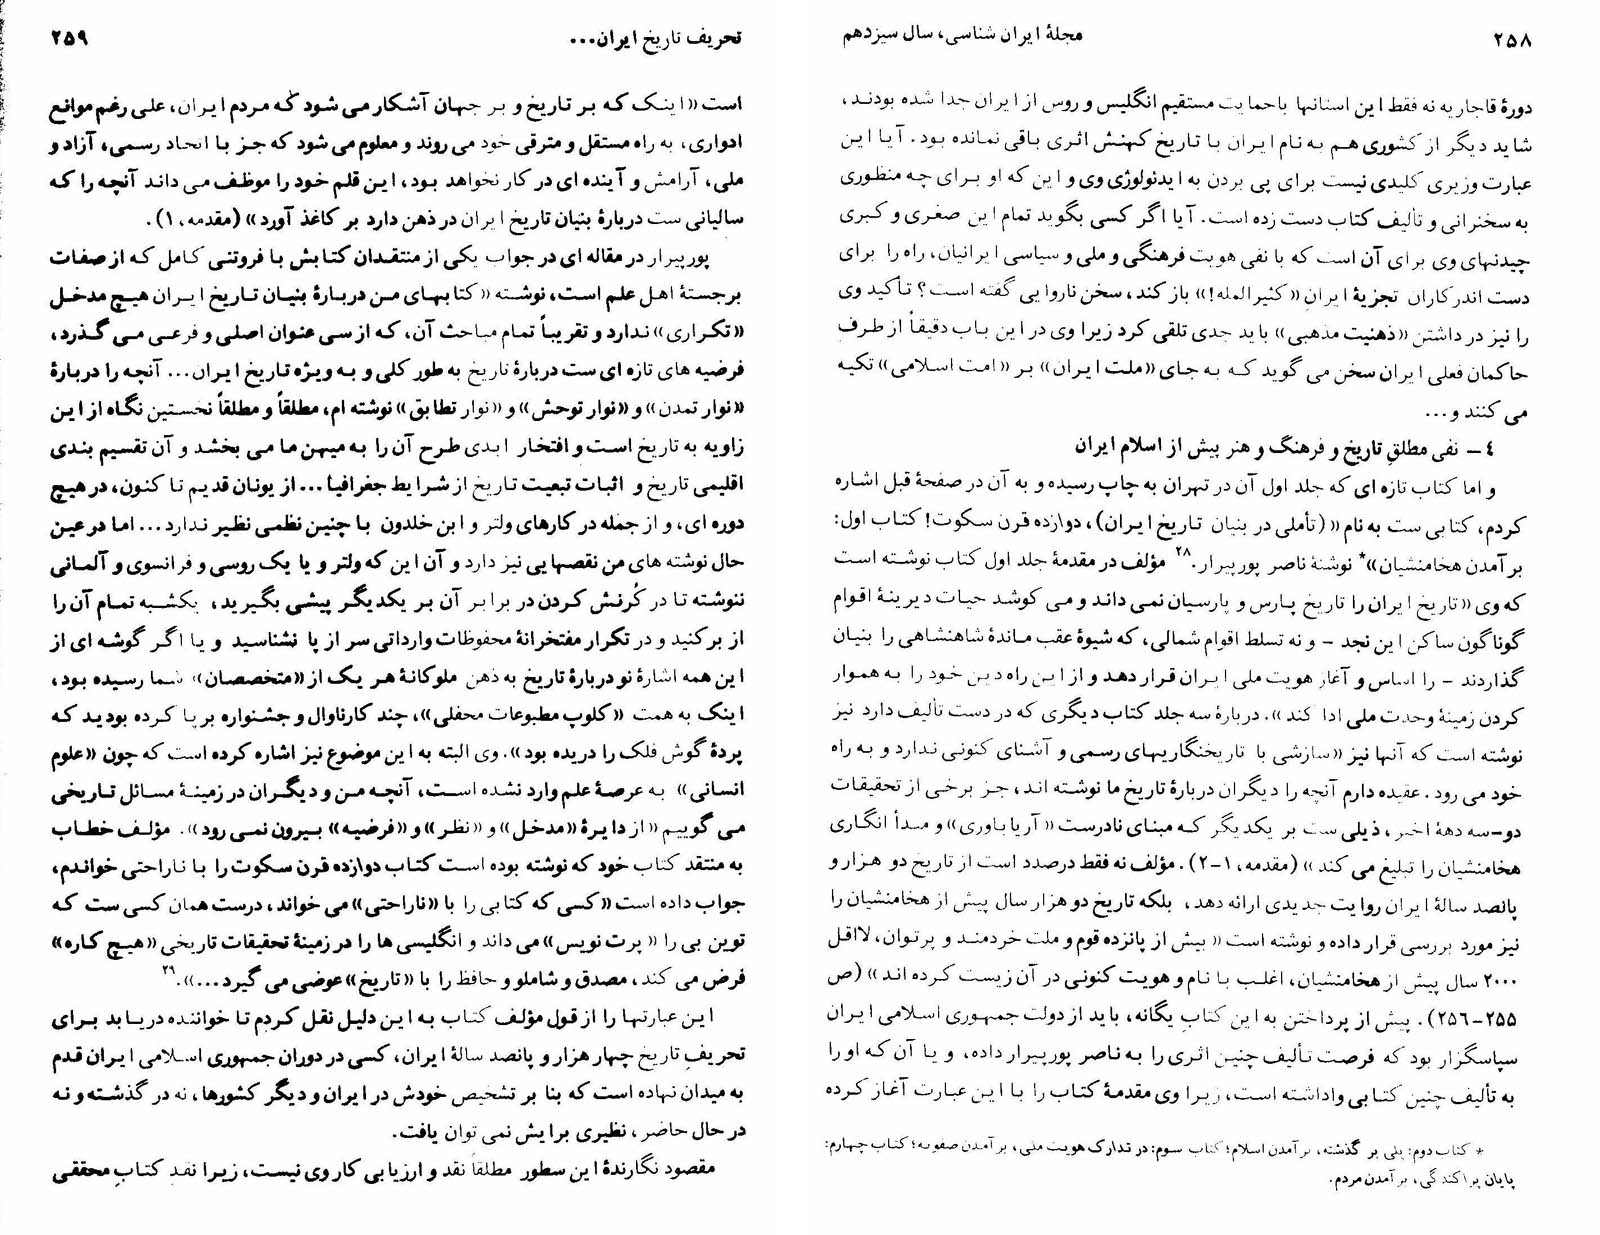 ۲۵۸
مجلهٔ ایران شناسی، سال سیزدهم
دورهٔ قاجاریه نه فقط این استانها باحمایت مستقیم انگلیس و روس از ایران جدا شده بودند،
شاید دیگر از کشوری هم به نام ایران با تاریخ کهنش اثری باقی نمانده بود. آیا این
عبارت وزیری کلیدی نیست برای پی بردن به ایدئولوژی وی و این که او برای چه منظوری
به سخنرانی و تألیف کتاب دست زده است. آیا اگر کسی بگوید تمام این صغری و کبری
چیدنهای وی برای آن است که با نفی هویت فرهنگی و ملی و سیاسی ایرانیان، راه را برای
دست اندرکاران تجزیهٔ ایرانِ «کثیرالمله!» باز کند، سخن ناروایی گفته است؟ تأکید وی
را نیز در داشتن «ذهنیت مذهبی» باید جدی تلقی کرد زیرا وی در این باب دقیقاً از طرف
حاکمان فعلی ایران سخن می گوید که به جای «ملت ایران» بر «امت اسلامی» تکیه
می کنند و...
٤ - نفی مطلقِ تاریخ و فرهنگ و هنر پیش از اسلام ایران
و اما کتاب تازه ای که جلد اول آن در تهران به چاپ رسیده و به آن در صفحهٔ قبل اشاره
کردم، کتابی ست به نام «(تأملی در بنیان تاریخ ایران)، دوازده قرن سکوت! کتاب اول:
برآمدن هخامنشیان»* نوشتهٔ ناصر پورپیرار.۲۸ مؤلف در مقدمهٔ جلد اول کتاب نوشته است
که وی «تاریخ ایران را تاریخ پارس و پارسیان نمی داند و می کوشد حیات دیرینهٔ اقوام
گوناگون ساکن این نجد - و نه تسلط اقوام شمالی، که شیوهٔ عقب ماندهٔ شاهنشاهی را بنیان
گذاردند - را اساس و آغاز هویت ملی ایران قرار دهد و از این راه دین خود را به هموار
کردن زمینهٔ وحدت ملی ادا کند». دربارهٔ سه جلد کتاب دیگری که در دست تألیف دارد نیز
نوشته است که آنها نیز «سازشی با تاریخنگاریهای رسمی و آشنای کنونی ندارد و به راه
خود می رود. عقیده دارم آنچه را دیگران دربارهٔ تاریخ ما نوشته اند، جز برخی از تحقیقات
دو-سه دههٔ اخیر، ذیلی ست بر یکدیگر که مبنای نادرست «آریاباوری» و مبدأ انگاری
هخامنشیان را تبلیغ می کند» (مقدمه، ۱-۲). مؤلف نه فقط درصدد است از تاریخ دو هزار و
پانصد سالهٔ ایران روایت جدیدی ارائه دهد، بلکه تاریخ دو هزار سال پیش از هخامنشیان را
نیز مورد بررسی قرار داده و نوشته است «بیش از پانزده قوم و ملت خردمند و پرتوان، لااقل
۲۰۰۰ سال پیش از هخامنشیان، اغلب با نام و هویت کنونی در آن زیست کرده اند» (ص
۲۵۵-۲۵٦). پیش از پرداختن به این کتابِ یگانه، باید از دولت جمهوری اسلامی ایران
سپاسگزار بود که فرصت تألیف چنین اثری را به ناصر پورپیرار داده، و یا آن که او را
به تألیف چنین کتابی واداشته است، زیرا وی مقدمهٔ کتاب را با این عبارت آغاز کرده
* کتاب دوم: پلی بر گذشته، برآمدن اسلام؛ کتاب سوم: در تدارک هویت ملی، برآمدن صفویه؛ کتاب چهارم:
پایان پراکندگی، برآمدن مردم.
تحریف تاریخ ایران...
۲۵۹
است «اینک که بر تاریخ و بر جهان آشکار می شود که مردم ایران، علی رغم موانع
ادواری، به راه مستقل و مترقی خود می روند و معلوم می شود که جز با اتحاد رسمی، آزاد و
ملی، آرامش و آینده ای در کار نخواهد بود، این قلم خود را موظف می داند آنچه را که
سالیانی ست دربارهٔ بنیان تاریخ ایران در ذهن دارد بر کاغذ آورد» (مقدمه، ۱).
پورپیرار در مقاله ای در جواب یکی از منتقدان کتابش با فروتنی کامل که از صفات
برجستهٔ اهل علم است، نوشته «کتابهای من دربارهٔ بنیان تاریخ ایران هیچ مدخل
«تکراری» ندارد و تقریباً تمام مباحث آن، که از سی عنوان اصلی و فرعی می گذرد،
فرضیه های تازه ای ست دربارهٔ تاریخ به طور کلی و به ویژه تاریخ ایران... آنچه را دربارهٔ
«نوار تمدن» و «نوار توحش» و «نوار تطابق» نوشته ام، مطلقاً و مطلقاً نخستین نگاه از این
زاویه به تاریخ است و افتخار ابدی طرح آن را به میهن ما می بخشد و آن تقسیم بندی
اقلیمی تاریخ و اثبات تبعیت تاریخ از شرایط جغرافیا... از یونان قدیم تا کنون، در هیچ
دوره ای، و از جمله در کارهای ولتر و ابن خلدون با چنین نظمی نظیر ندارد... اما در عین
حال نوشته های من نقصهایی نیز دارد و آن این که ولتر و یا یک روسی و فرانسوی و آلمانی
ننوشته تا در کُرنش کردن در برابر آن بر یکدیگر پیشی بگیرید، یکشبه تمام آن را
از بر کنید و در تکرار مفتخرانهٔ محفوظات وارداتی سر از پا نشناسید و یا اگر گوشه ای از
این همه اشارهٔ نو دربارهٔ تاریخ به ذهن ملوکانهٔ هر یک از «متخصصان» شما رسیده بود،
اینک به همت «کلوپ مطبوعات محفلی»، چند کارناوال و جشنواره برپا کرده بودید که
پردهٔ گوش فلک را دریده بود». وی البته به این موضوع نیز اشاره کرده است که چون «علوم
انسانی» به عرصهٔ علم وارد نشده است، آنچه من و دیگران در زمینهٔ مسائل تاریخی
می گوییم «از دایرهٔ «مدخل» و «نظر» و «فرضیه» بیرون نمی رود». مؤلف خطاب
به منتقد کتاب خود که نوشته بوده است کتاب دوازده قرن سکوت را با ناراحتی خواندم،
جواب داده است «کسی که کتابی را با «ناراحتی» می خواند، درست همان کسی ست که
توین بی را «پرت نویس» می داند و انگلیسی ها را در زمینهٔ تحقیقات تاریخی «هیچ کاره»
فرض می کند، مصدق و شاملو و حافظ را با «تاریخ» عوضی می گیرد...».۲۹
این عبارتها را از قول مؤلف کتاب به این دلیل نقل کردم تا خواننده دریابد برای
تحریفِ تاریخ چهار هزار و پانصد سالهٔ ایران، کسی در دوران جمهوری اسلامی ایران قدم
به میدان نهاده است که بنا بر تشخیص خودش در ایران و دیگر کشورها، نه در گذشته و نه
در حال حاضر، نظیری برایش نمی توان یافت.
مقصود نگارندهٔ این سطور مطلقاً نقد و ارزیابی کار وی نیست، زیرا نقد کتابِ محققی